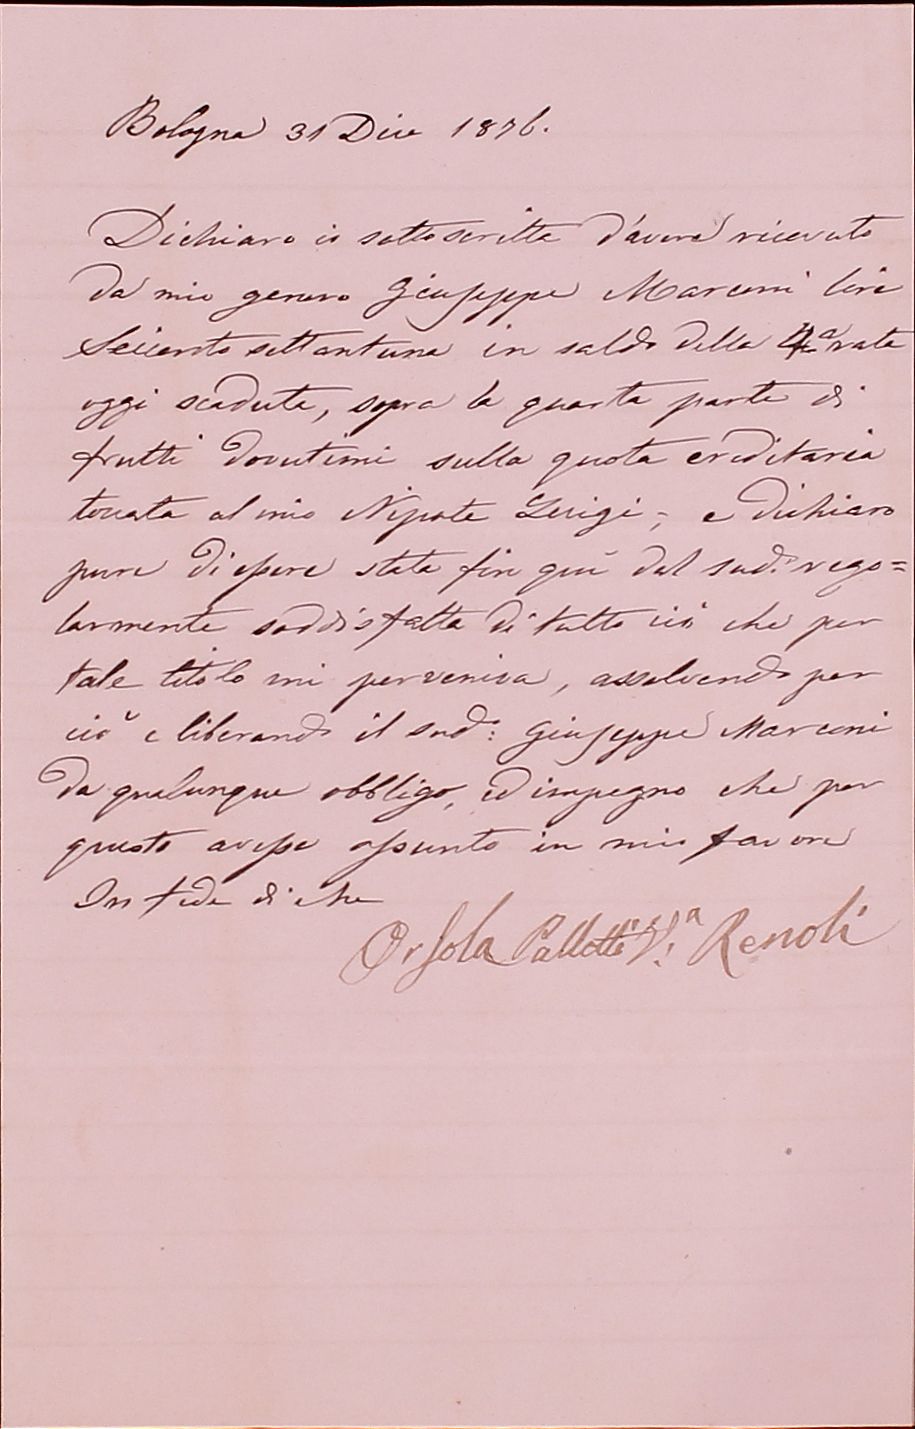 Bologna 31 Dice 1876.
Dichiaro io sottoscritta d'avere ricevuto
da mio genero Giuseppe Marconi lire
Seicento settantuna in saldo della 4ª rata
oggi scaduta, sopra la quarta parte di
frutti dovutimi sulla quota ereditaria
toccata al mio Nipote Luigi; e dichiaro
pure di essere stata fin quì dal sudº rego=
larmente soddisfatta di tutto ciò che per
tale titolo mi perveniva, assolvendo per
ciò e liberando il sudº: Giuseppe Marconi
da qualunque obbligo, ed impegno che per
questo avesse assunto in mio favore
In fede di che
Orsola Pallotti Vª Renoli